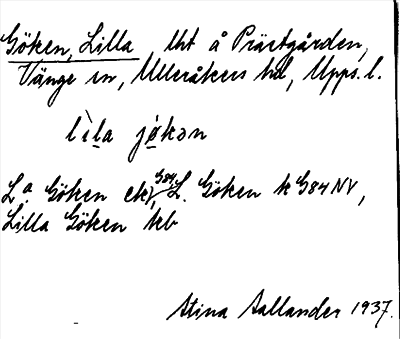 Göken, Lilla lht å Prästgården,
Vänge sn, Ulleråkers hd, Upps. l.
lìla jøkən
La Göken ek, G84 L. Göken k G84 NV,
Lilla Göken kb
Stina Sallander 1937.